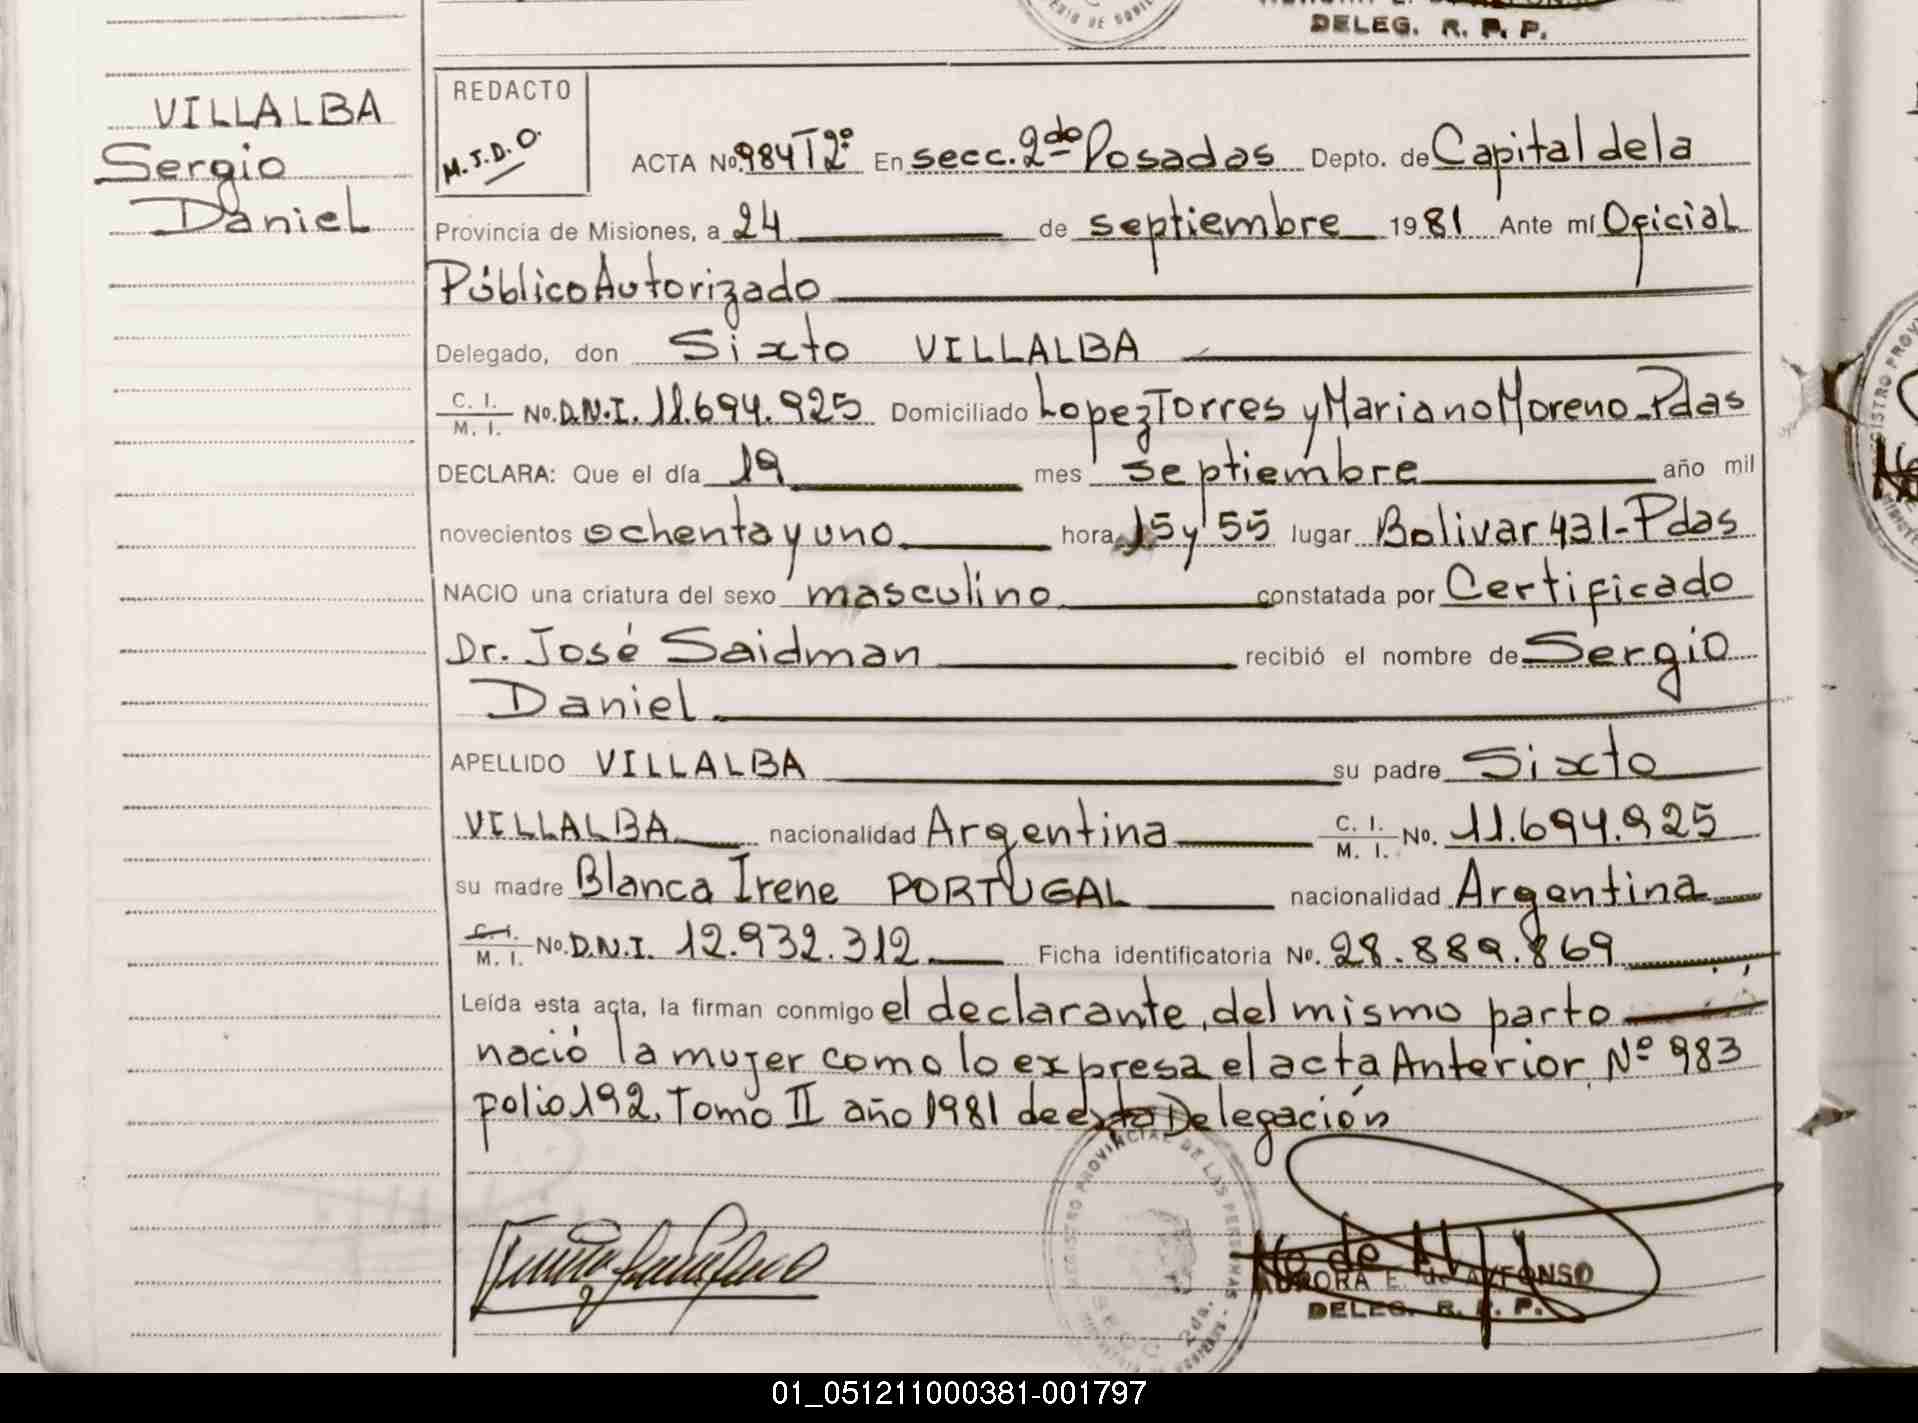 DELEG. R. P. P.
VILLALBA
Sergio
Daniel
REDACTO
M.J.D.O.
ACTA No. 984 T 2º En secc. 2do Posadas Depto. de Capital de la
Provincia de Misiones, a 24 de septiembre 1981 Ante mí Oficial
Público Autorizado
Delegado, don Sixto VILLALBA
C. I. M. I. No. D.N.I. 11.694.925 Domiciliado Lopez Torres y Mariano Moreno-Pdas
DECLARA: Que el día 19 mes septiembre año mil
novecientos ochenta y uno hora 15 y 55 lugar Bolivar 431-Pdas
NACIO una criatura del sexo masculino constatada por Certificado
Dr. José Saidman recibió el nombre de Sergio
Daniel
APELLIDO VILLALBA su padre Sixto
VILLALBA nacionalidad Argentina C. I. M. I. No. 11.694.925
su madre Blanca Irene PORTUGAL nacionalidad Argentina
C. I. M. I. No. D.N.I. 12.932.312 Ficha identificatoria No. 28.889.869
Leída esta acta, la firman conmigo el declarante, del mismo parto
nació la mujer como lo expresa el acta Anterior Nº 983
folio 192. Tomo II año 1981 de esta Delegación
REGISTRO PROVINCIAL DE LAS PERSONAS
SECC 2da.
AURORA E. de ALFONSO
DELEG. R. P. P.
01_051211000381-001797